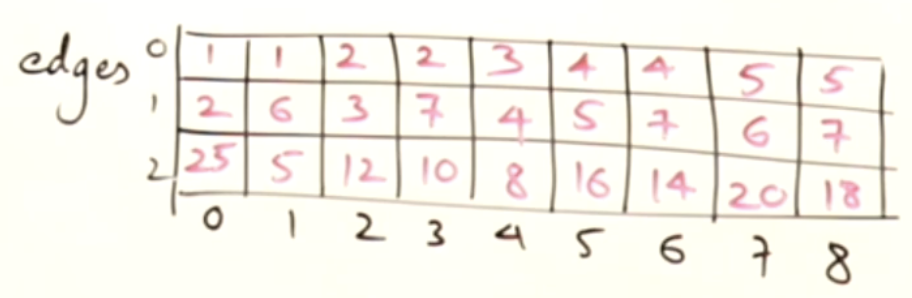 edges 0 1 1 2 2 3 4 4 5 5
1 2 6 3 7 4 5 7 6 7
2 25 5 12 10 8 16 14 20 18
0 1 2 3 4 5 6 7 8